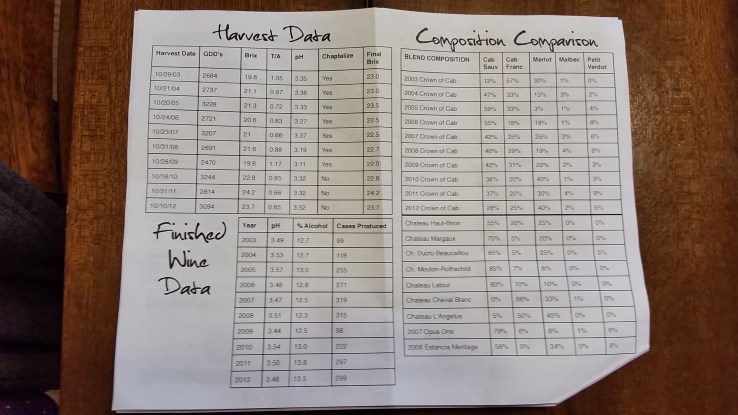 Harvest Data
Harvest Date GDD's Brix T/A pH Chaptalize Final Brix
10/29/03 2684 19.6 1.05 3.35 Yes 23.0
10/21/04 2737 21.1 0.97 3.38 Yes 23.0
10/20/05 3228 21.3 0.72 3.33 Yes 23.5
10/24/06 2721 20.6 0.83 3.27 Yes 22.5
10/23/07 3207 21 0.66 3.37 Yes 22.5
10/31/08 2691 21.6 0.88 3.19 Yes 22.7
10/28/09 2470 19.6 1.17 3.11 Yes 22.0
10/18/10 3244 22.8 0.85 3.32 No 22.8
10/31/11 2814 24.2 0.66 3.32 No 24.2
10/10/12 3094 23.7 0.65 3.52 No 23.7
Finished Wine Data
Year pH % Alcohol Cases Produced
2003 3.49 12.7 99
2004 3.53 12.7 119
2005 3.57 13.0 255
2006 3.48 12.8 271
2007 3.47 12.5 319
2008 3.51 12.3 315
2009 3.44 12.5 98
2010 3.54 13.0 222
2011 3.50 13.8 297
2012 3.48 13.5 299
Composition Comparison
BLEND COMPOSITION Cab Sauv Cab Franc Merlot Malbec Petit Verdot
2003 Crown of Cab 12% 57% 30% 1% 0%
2004 Crown of Cab 47% 33% 15% 3% 2%
2005 Crown of Cab 59% 33% 3% 1% 4%
2006 Crown of Cab 55% 18% 18% 1% 8%
2007 Crown of Cab 42% 25% 25% 2% 6%
2008 Crown of Cab 40% 29% 19% 4% 8%
2009 Crown of Cab 42% 31% 22% 2% 3%
2010 Crown of Cab 36% 20% 40% 1% 3%
2011 Crown of Cab 37% 20% 30% 4% 9%
2012 Crown of Cab 28% 25% 40% 2% 5%
Chateau Haut-Brion 55% 20% 25% 0% 0%
Chateau Margaux 75% 5% 20% 0% 0%
Ch. Ducru Beaucaillou 65% 5% 25% 0% 5%
Ch. Mouton-Rothschild 85% 7% 8% 0% 0%
Chateau Latour 80% 10% 10% 0% 0%
Chateau Cheval Blanc 0% 66% 33% 1% 0%
Chateau L'Angelus 5% 50% 45% 0% 0%
2007 Opus One 79% 6% 8% 1% 6%
2008 Estancia Meritage 58% 0% 34% 0% 8%